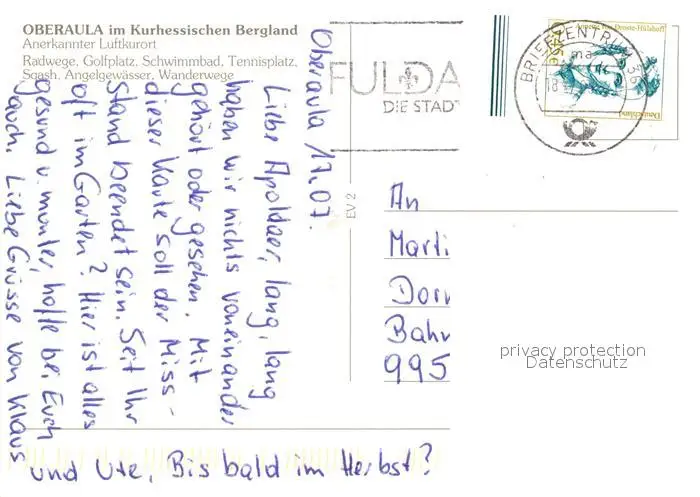 OBERAULA im Kurhessischen Bergland
Anerkannter Luftkurort
Radwege, Golfplatz, Schwimmbad, Tennisplatz,
Sqash, Angelgewässer, Wanderwege
Oberaula 17.07.
Liebe Apoldaer, lang, lang
haben wir nichts voneinander
gehört oder gesehen. Mit
dieser Karte soll der Miss-
stand beendet sein. Seid Ihr
oft im Garten? Hier ist alles
gesund u. munter, hoffe bei Euch
auch. Liebe Grüsse von Klaus
und Ute, Bis bald im Herbst?
EV 2
FULDA
DIE STADT
BRIEFZENTRUM 36
18
Deutschland
An
Marti
Dorn
Bahn
995
privacy protection
Datenschutz